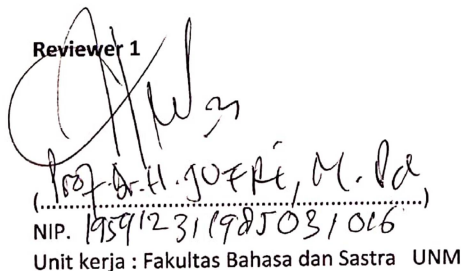 Reviewer 1
(Prof. Dr. H. JUFRI, M. Pd)
NIP. 195912311985031016
Unit kerja : Fakultas Bahasa dan Sastra UNM